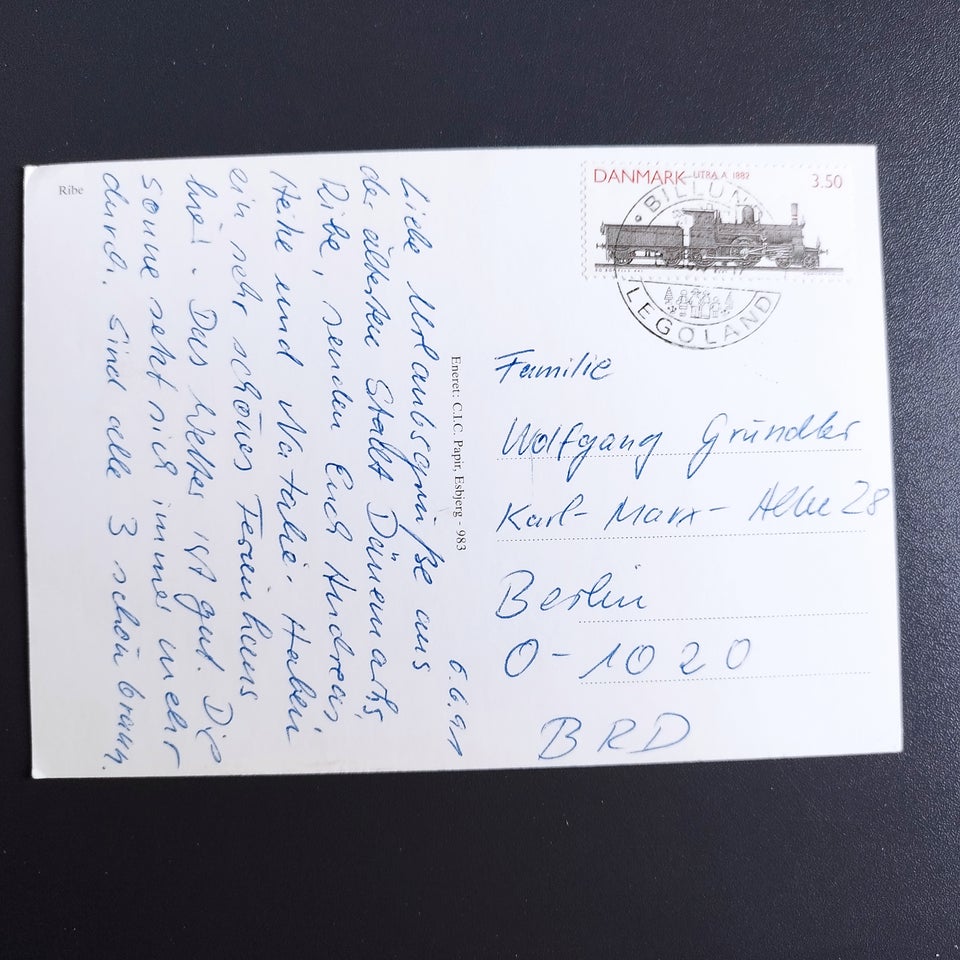 Ribe
6.6.91
Liebe Urlaubsgrüße aus
der ältesten Stadt Dänemarks,
Ribe, senden Euch Andreas
Heike und Natalie. Haben
ein sehr schönes Ferienhaus
hier. Das Wetter ist gut. Die
Sonne setzt sich immer mehr
durch. Sind alle 3 schön braun.
Eneret: C.I.C. Papir, Esbjerg - 983
DANMARK LITRA A. 1882 3.50
BILLUND
LEGOLAND
Familie
Wolfgang Gründler
Karl-Marx-Allee 28
Berlin
O-1020
BRD